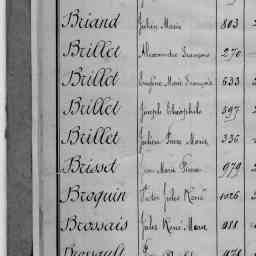 Briand Julien Marie 803
Brillet Alexandre François 270
Brillet Eugène Marie François 633
Brillet Joseph Théophile 597
Brillet Julien Pierre Marie 336
Brisset Jean Marie Pierre 979
Broquin Victor Jules René 1026
Brossais Jules René Marie 988
Brossault